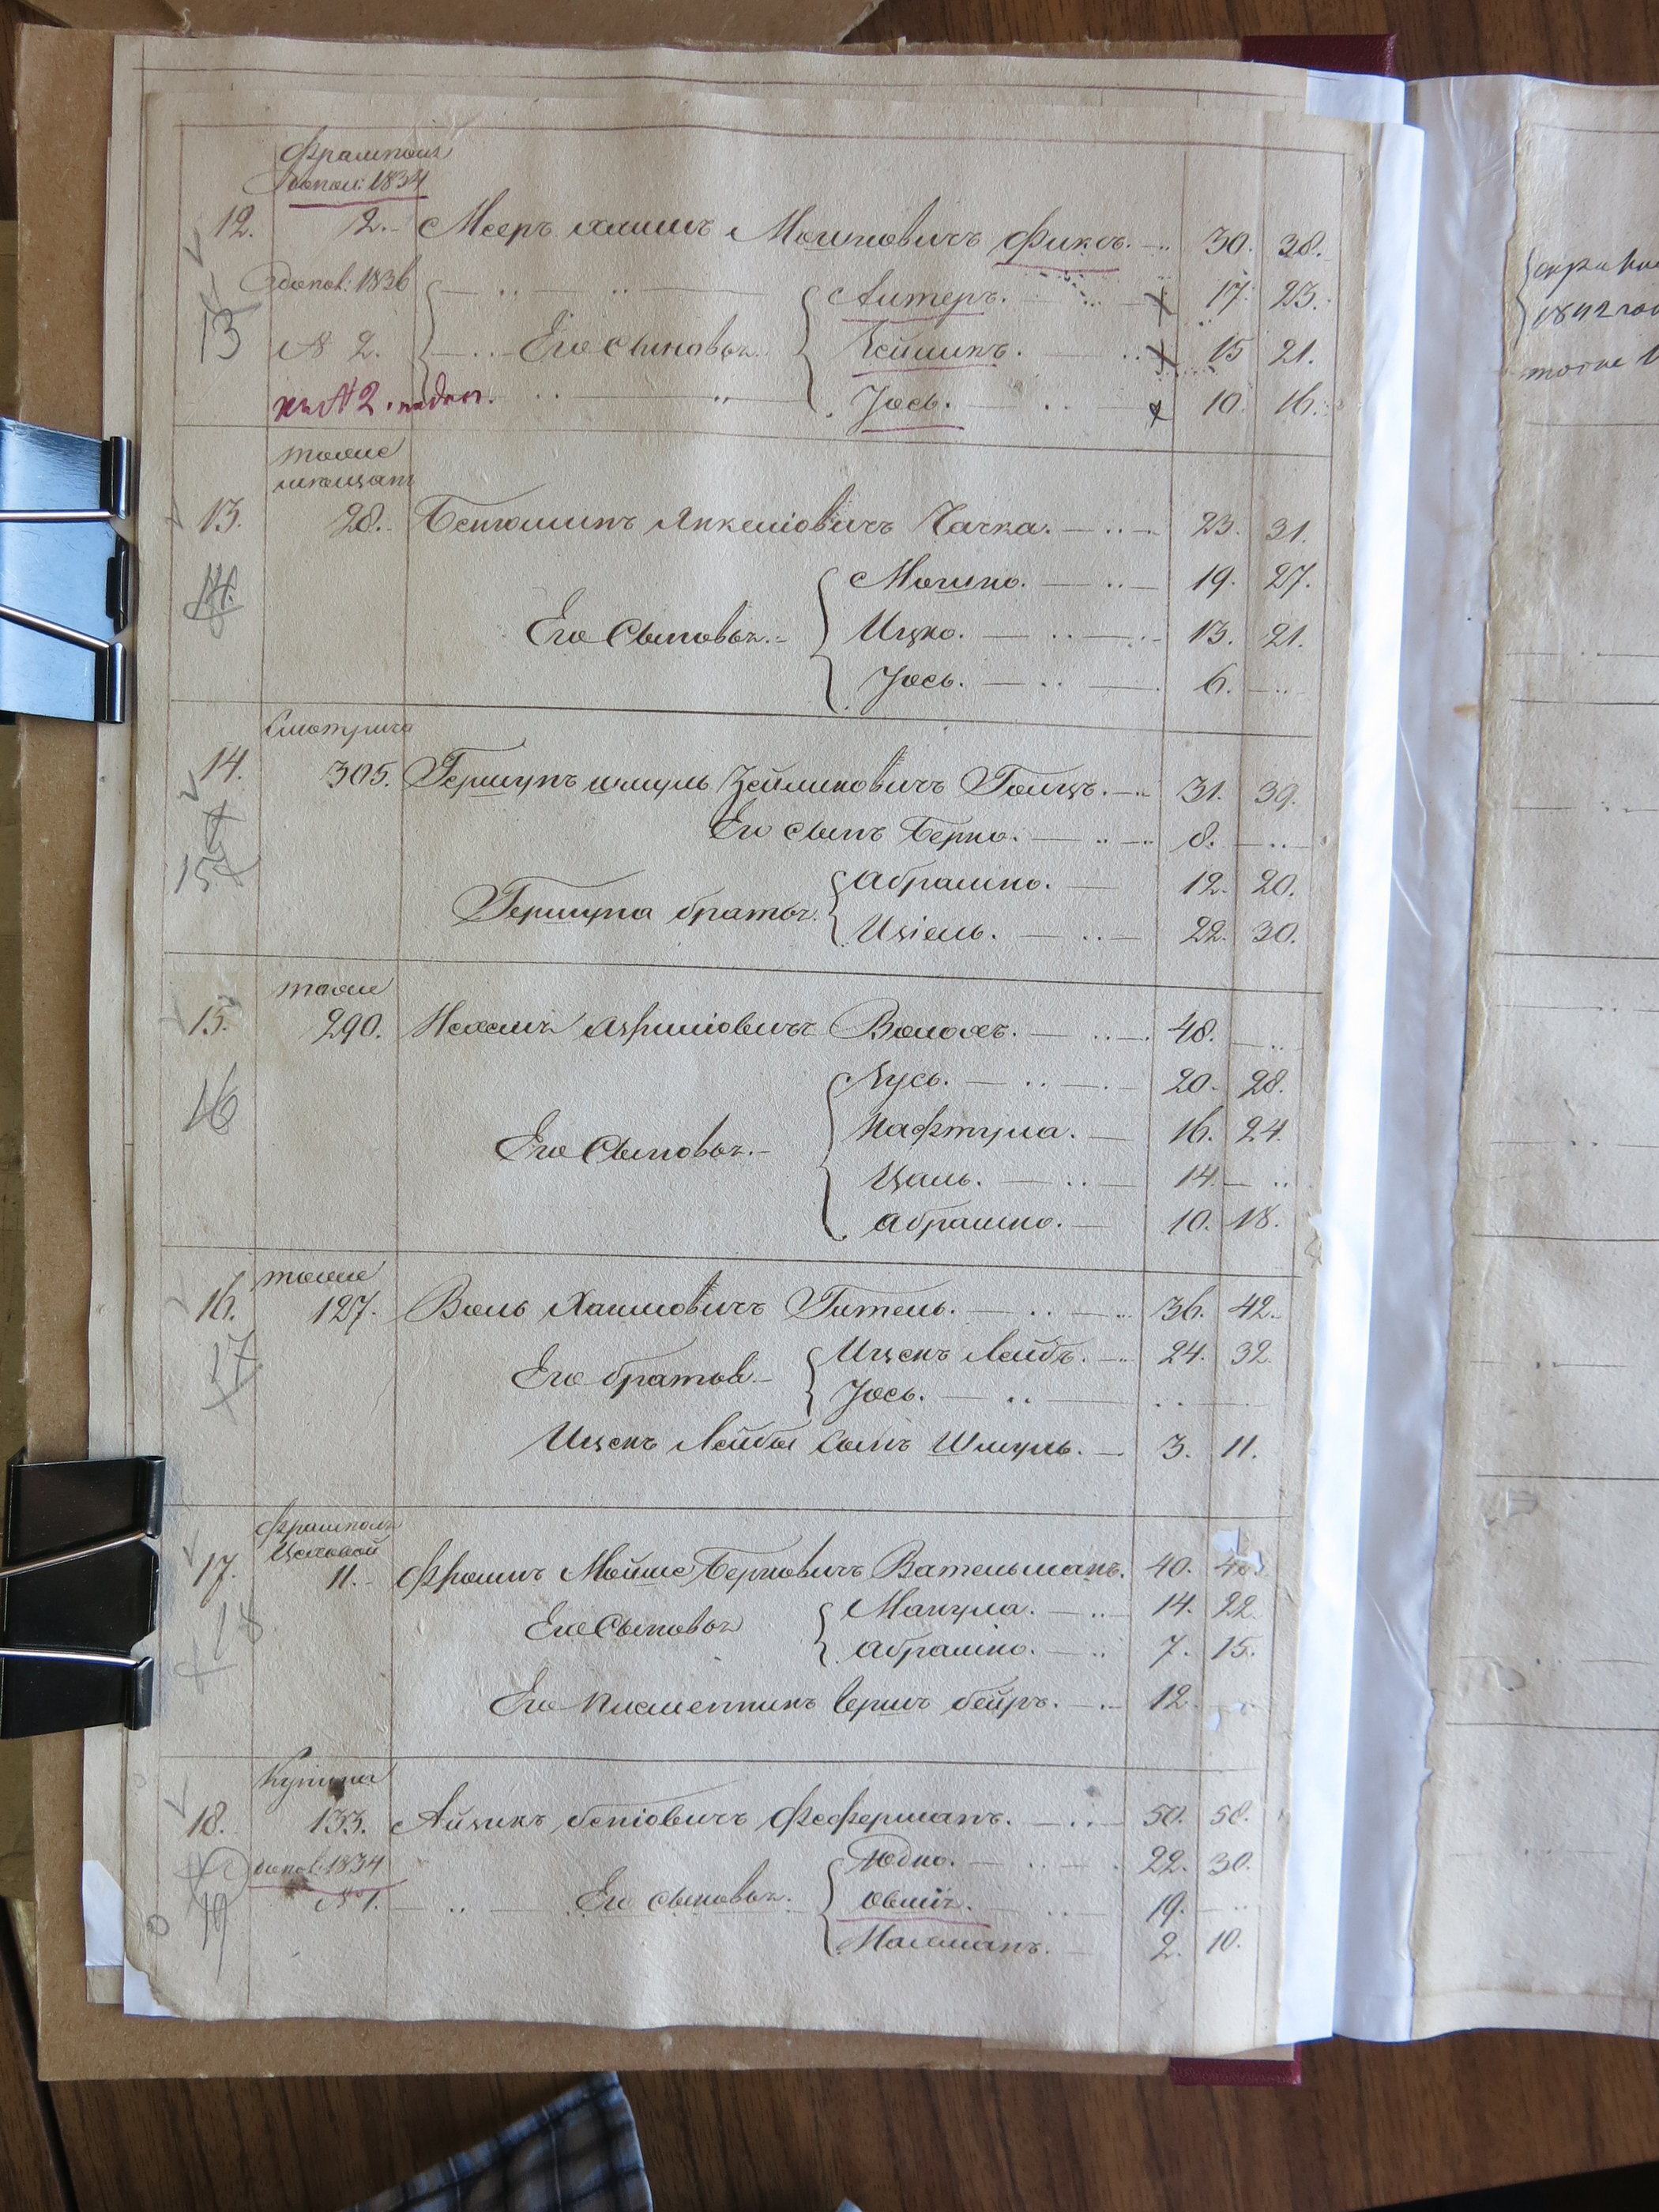 Фрамполь
допол: 1834
12. 12. Меер Хаимъ Мошковичъ Фиксъ. 30. 38.
допол: 1836 Литеръ. 17. 23.
13 № 2. Его сыновья Зейликъ. 15 21.
къ № 2. Іось. 10. 16.
тоже
мещан
13. 28. Беньюминъ Янкеліовичъ Чачка. 23. 31.
14. Мошко. 19. 27.
Его Сыновья. Ицко. 13. 21.
Іось. 6.
Смотрича
14. 305. Гершунъ шмуль Зейликовичъ Гольцъ. 31. 39.
Его сынъ Берко. 8.
15 Абрашко. 12. 20.
Гершуна братья Изіель. 22. 30.
тоже
15. 290. Нехемъ Азриліовичъ Волохъ. 48.
Зусь. 20. 28.
16 Нафтула. 16. 24.
Его Сыновья. Цаль. 14.
Абрашко. 10. 18.
тоже
16. 127. Воль Хаимовичъ Гитель. 36. 42.
17 Ицекъ Лейбъ. 24. 32.
Его братов Іось.
Ицекъ Лейбы Сынъ Шмуль. 3. 11.
Фрамполь
Цеховой
17. 11. Фроимъ Мойше Берковичъ Вательманъ. 40. 48.
18 Манула. 14. 22.
Его Сыновья Абрашко. 7. 15.
Его племенникъ Герш бейръ. 12.
Купина
18. 133. Айзикъ беніовичъ Феферманъ. 50. 58.
допол: 1834 Юдко. 22. 30.
19 № 1. Его сыновья. Овший. 19.
Нахманъ. 2. 10.
1842 го
тоже